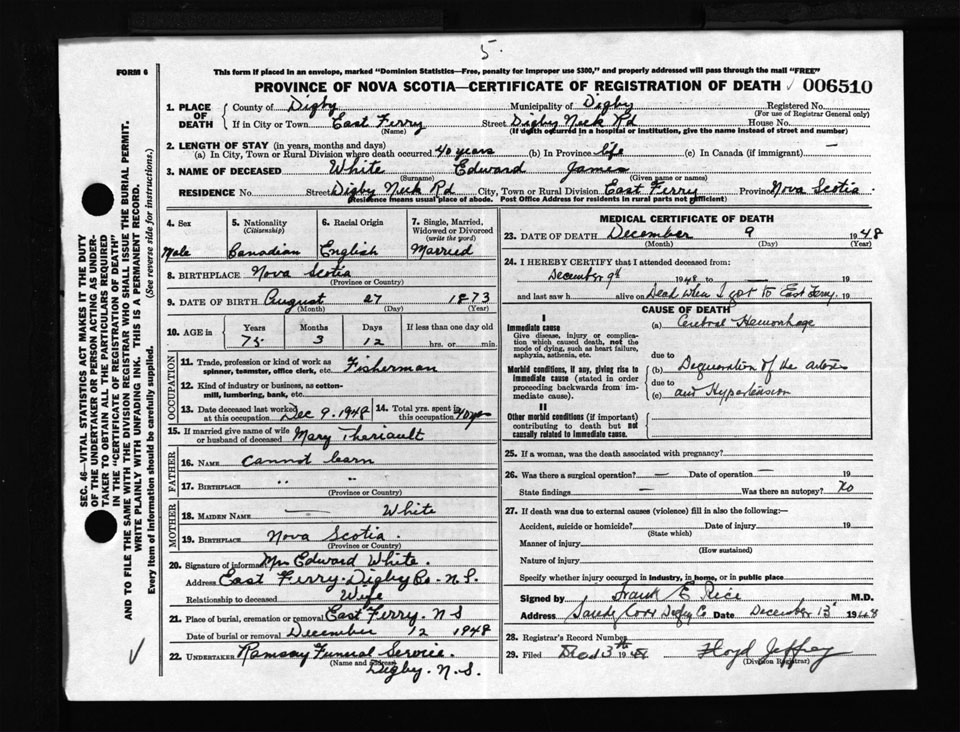 5.
FORM 6 This form if placed in an envelope, marked "Dominion Statistics—Free, penalty for improper use $300," and properly addressed will pass through the mail "FREE"
PROVINCE OF NOVA SCOTIA—CERTIFICATE OF REGISTRATION OF DEATH 006510
SEC. 46—VITAL STATISTICS ACT MAKES IT THE DUTY
OF THE UNDERTAKER OR PERSON ACTING AS UNDER-
TAKER TO OBTAIN ALL THE PARTICULARS REQUIRED
IN THE "CERTIFICATE OF REGISTRATION OF DEATH"
AND TO FILE THE SAME WITH THE DIVISION REGISTRAR WHO SHALL ISSUE THE BURIAL PERMIT.
WRITE PLAINLY WITH UNFADING INK. THIS IS A PERMANENT RECORD.
Every item of information should be carefully supplied. (See reverse side for instructions.)
1. PLACE OF DEATH County of Digby Municipality of Digby Registered No.
(For use of Registrar General only)
If in City or Town East Ferry Street Digby Neck Rd House No.
(Name) (If death occurred in a hospital or institution, give the name instead of street and number)
2. LENGTH OF STAY (in years, months and days)
(a) In City, Town or Rural Division where death occurred 40 years (b) In Province life (c) In Canada (if immigrant) —
3. NAME OF DECEASED White Edward James
(Surname) (Given name or names)
RESIDENCE No. Street Digby Neck Rd City, Town or Rural Division East Ferry Province Nova Scotia.
(Residence means usual place of abode. Post Office Address for residents in rural parts not sufficient)
4. Sex 5. Nationality (Citizenship) 6. Racial Origin 7. Single, Married, Widowed or Divorced (write the word)
Male Canadian English Married
8. BIRTHPLACE Nova Scotia
(Province or Country)
9. DATE OF BIRTH August 27 1873
(Month) (Day) (Year)
10. AGE in Years Months Days If less than one day old
75 3 12 hrs. or min.
OCCUPATION
11. Trade, profession or kind of work as spinner, teamster, office clerk, etc. Fisherman
12. Kind of industry or business, as cotton-mill, lumbering, bank, etc.
13. Date deceased last worked at this occupation Dec 9. 1948 14. Total yrs. spent in this occupation
15. If married give name of wife or husband of deceased Mary Theriault
FATHER
16. NAME Cannot learn
17. BIRTHPLACE " "
(Province or Country)
MOTHER
18. MAIDEN NAME — White
19. BIRTHPLACE Nova Scotia.
(Province or Country)
20. Signature of informant Mrs Edward White.
Address East Ferry. Digby Co. N.S.
Relationship to deceased Wife
21. Place of burial, cremation or removal East Ferry. N S
Date of burial or removal December 12 1948
22. UNDERTAKER Ramsay Funeral Service.
(Name and address) Digby. N.S.
MEDICAL CERTIFICATE OF DEATH
23. DATE OF DEATH December 9 1948
(Month) (Day) (Year)
24. I HEREBY CERTIFY that I attended deceased from:
December 9th 1948 to 19
and last saw h alive on Dead when I got to East Ferry. 19
CAUSE OF DEATH
I
Immediate cause (a) Cerebral Hemorrhage
Give disease, injury or complication which caused death, not the mode of dying, such as heart failure, asphyxia, asthenia, etc.
due to
Morbid conditions, if any, giving rise to immediate cause (stated in order proceeding backwards from immediate cause). (b) Degeneration of the
due to
(c) and Hypertension
II
Other morbid conditions (if important) contributing to death but not causally related to immediate cause.
25. If a woman, was the death associated with pregnancy?
26. Was there a surgical operation? — Date of operation — 19
State findings — Was there an autopsy? No
27. If death was due to external causes (violence) fill in also the following:—
Accident, suicide or homicide? Date of injury 19
(State which)
Manner of injury
(How sustained)
Nature of injury
Specify whether injury occurred in industry, in home, or in public place
Signed by Frank E Rice M.D.
Address Sandy Cove Digby Co Date December 13 1948
28. Registrar's Record Number
29. Filed 19 Floyd Jeffrey
(Division Registrar)